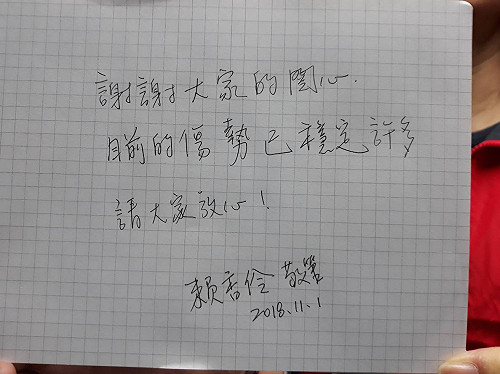 謝謝大家的關心.
目前的傷勢已穩定許多
請大家放心!
賴香伶 敬筆
2018.11.1